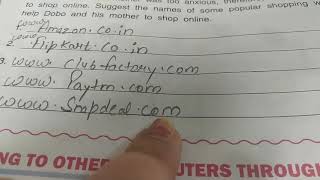 was too anxious, therefore
to shop online. Suggest the names of some popular shopping
help Dobo and his mother to shop online.
1. www.Amazon.co.in
2. www.flipkart.co.in
3. www.clubfactory.com
www.Paytm.com
www.Snapdeal.com
NG TO OTHER UTERS THROUGH